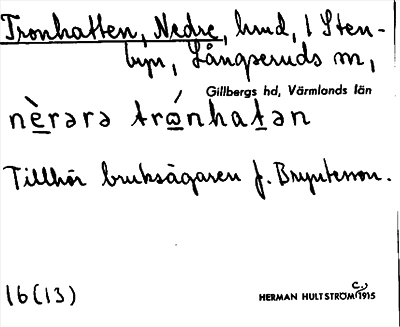 Tronhatten, Nedre, hmd, i Sten-
byn, Långseruds sn,
Gillbergs hd, Värmlands län
nèrərə trónhatən
Tillhör bruksägaren J. Bryntesson.
16(13)
HERMAN HULTSTRÖM C:a 1915